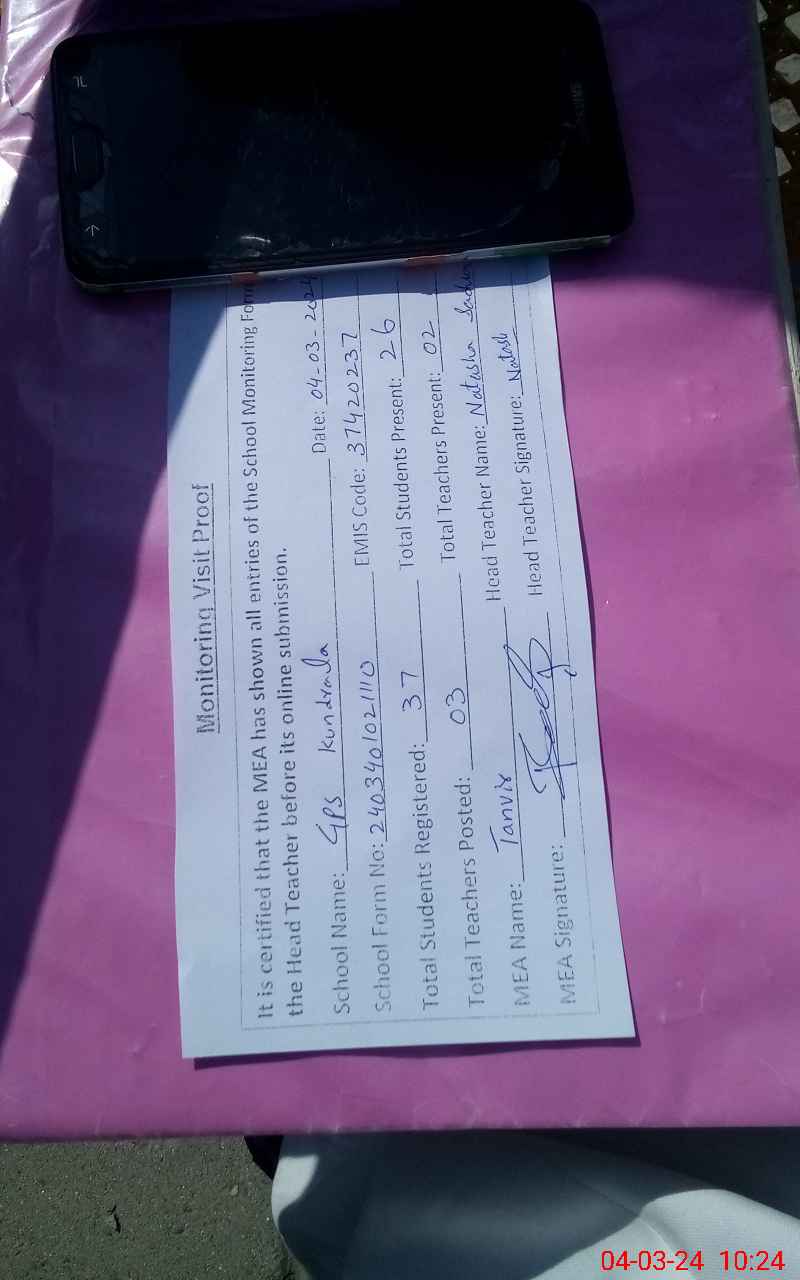 Monitoring Visit Proof
It is certified that the MEA has shown all entries of the School Monitoring Form
the Head Teacher before its online submission.
School Name: GPS Kundrala Date: 04-03-2024
School Form No: 2403401021110 EMIS Code: 37420237
Total Students Registered: 37 Total Students Present: 26
Total Teachers Posted: 03 Total Teachers Present: 02
MEA Name: Tanvir Head Teacher Name: Natasha
MEA Signature: Head Teacher Signature: Natash
SAMSUNG
04-03-24 10:24